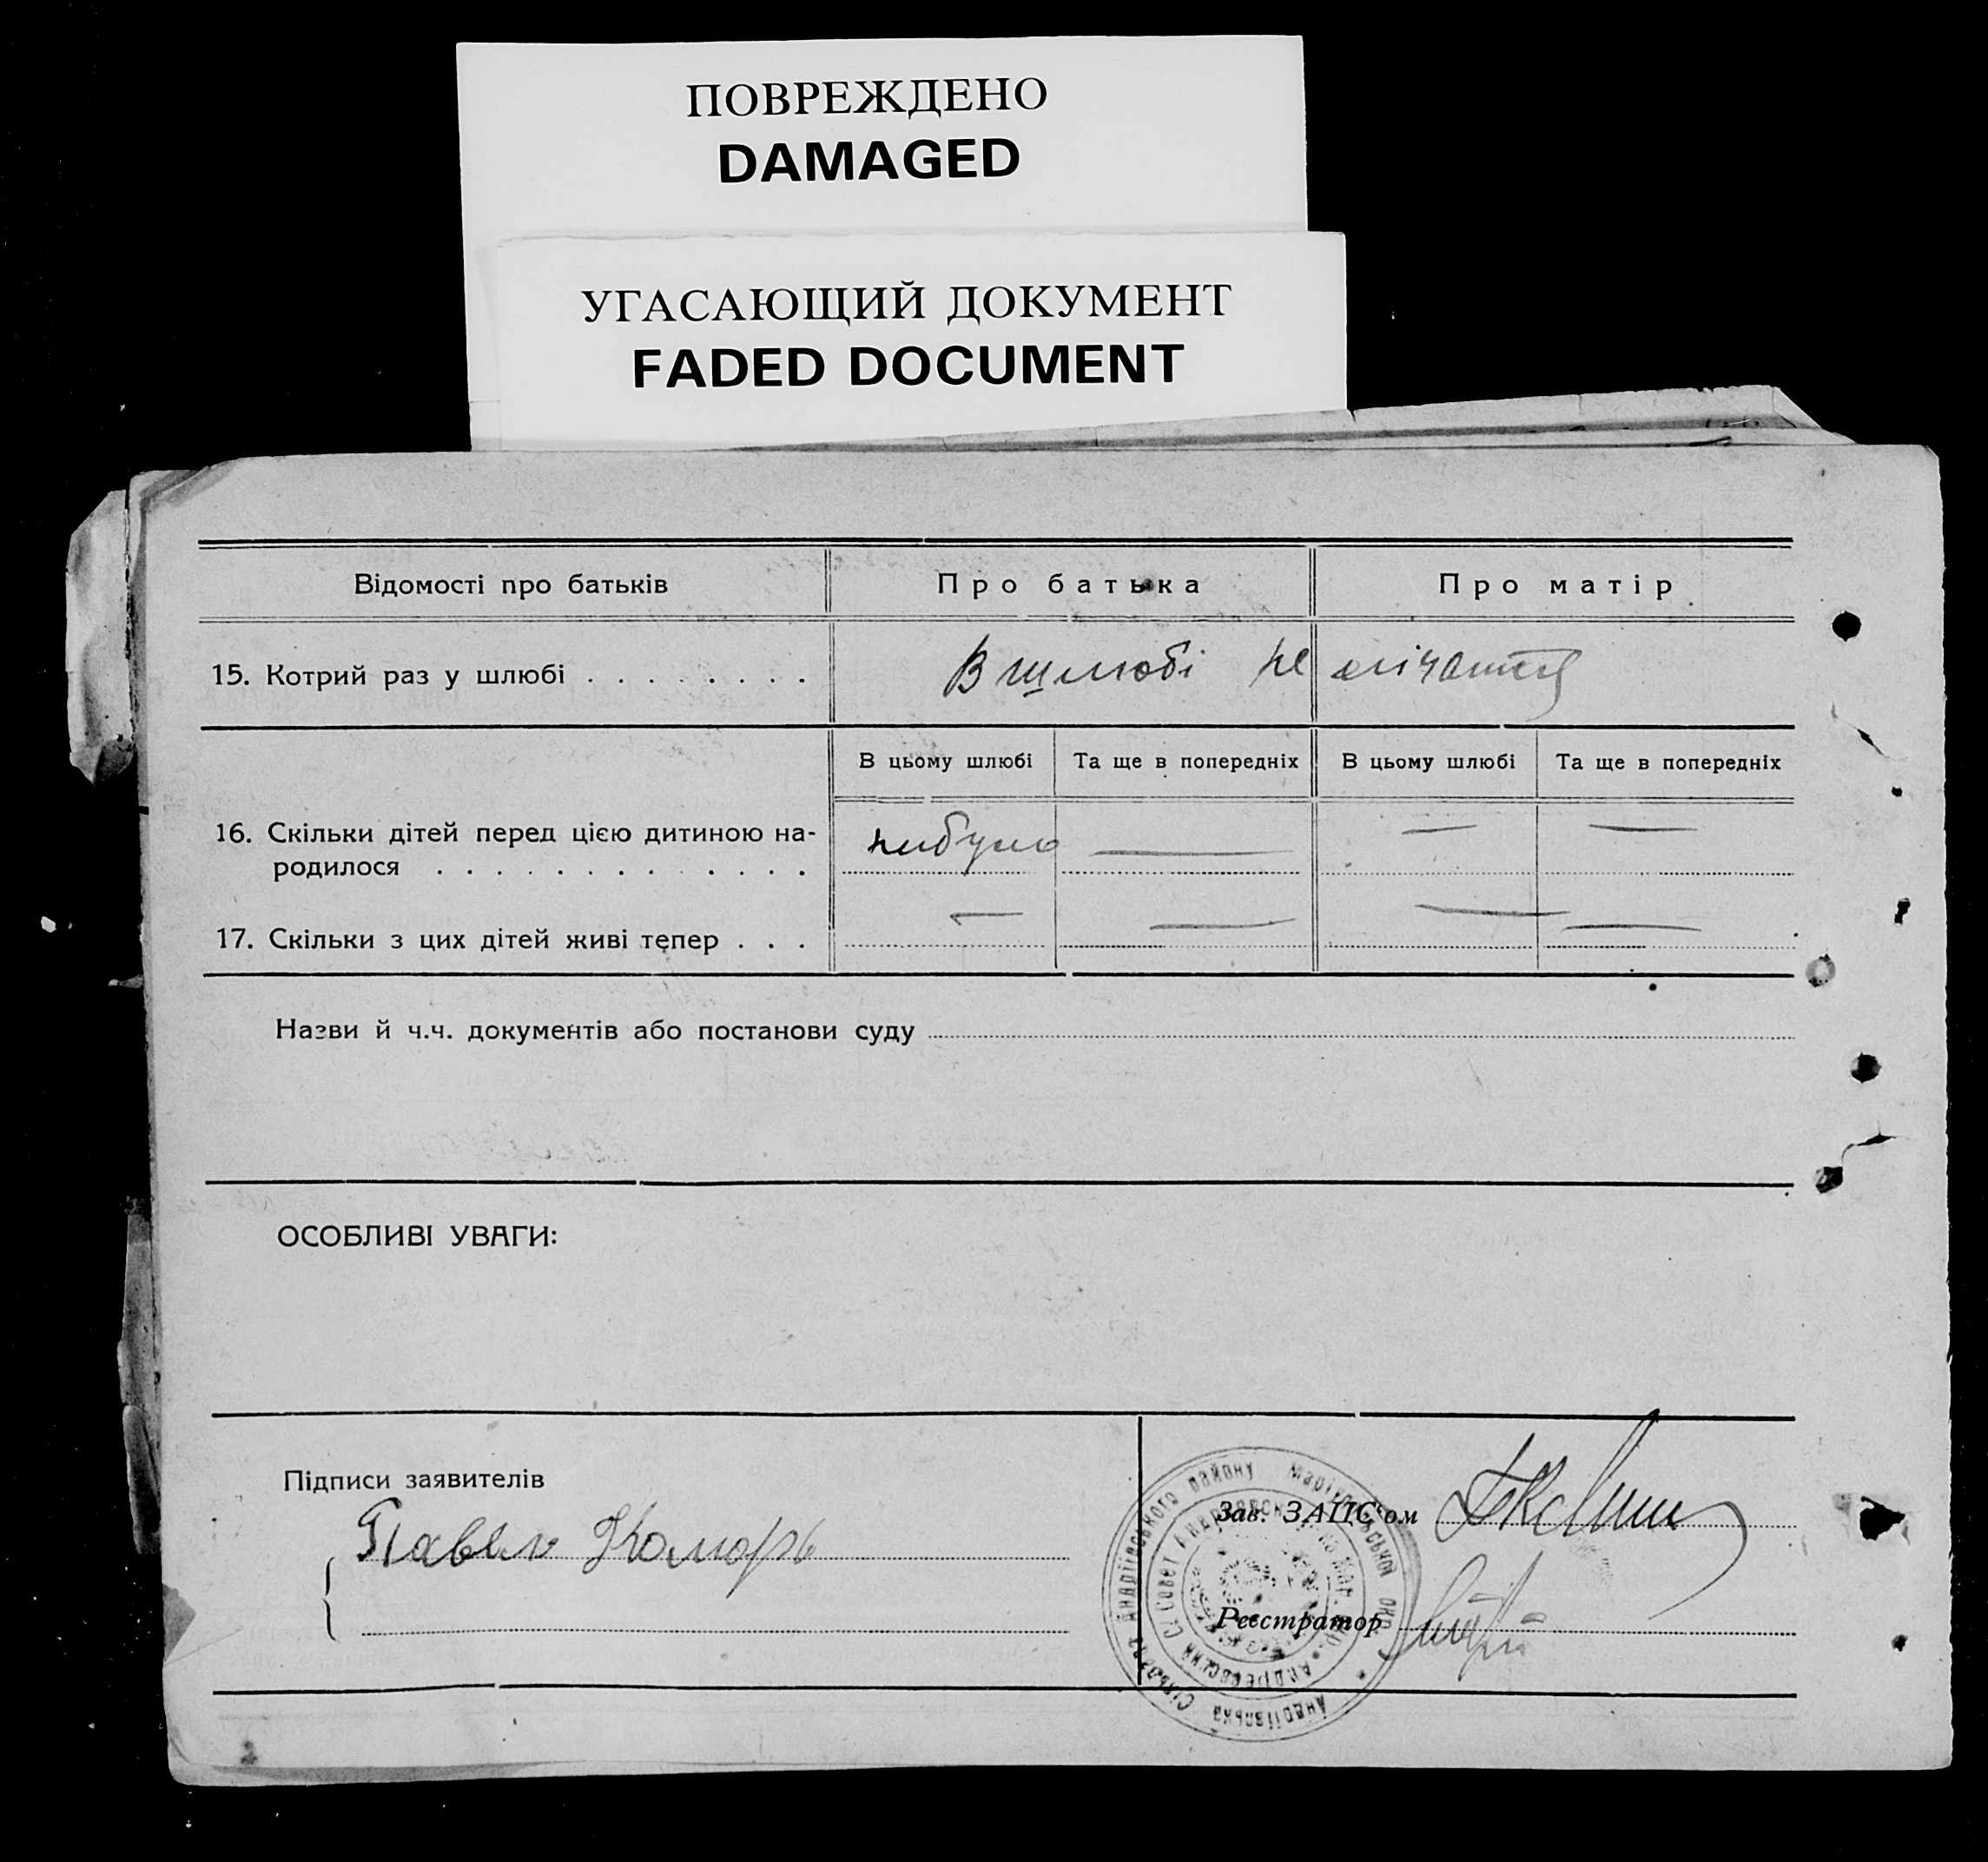 ПОВРЕЖДЕНО
DAMAGED
УГАСАЮЩИЙ ДОКУМЕНТ
FADED DOCUMENT
Відомості про батьків
Про батька
Про матір
15. Котрий раз у шлюбі
В шлюбі не лічатся
В цьому шлюбі
Та ще в попередніх
В цьому шлюбі
Та ще в попередніх
16. Скільки дітей перед цією дитиною на-
родилося
небуло
17. Скільки з цих дітей живі тепер
Назви й ч.ч. документів або постанови суду
ОСОБЛИВІ УВАГИ:
Підписи заявителів
Павел Комарь
Зав. ЗАЦС'ом
Реєстратор
Андріївська Сільрада Андріївського району Маріюпольської окр.
Андреевский С. Совет Андреевск